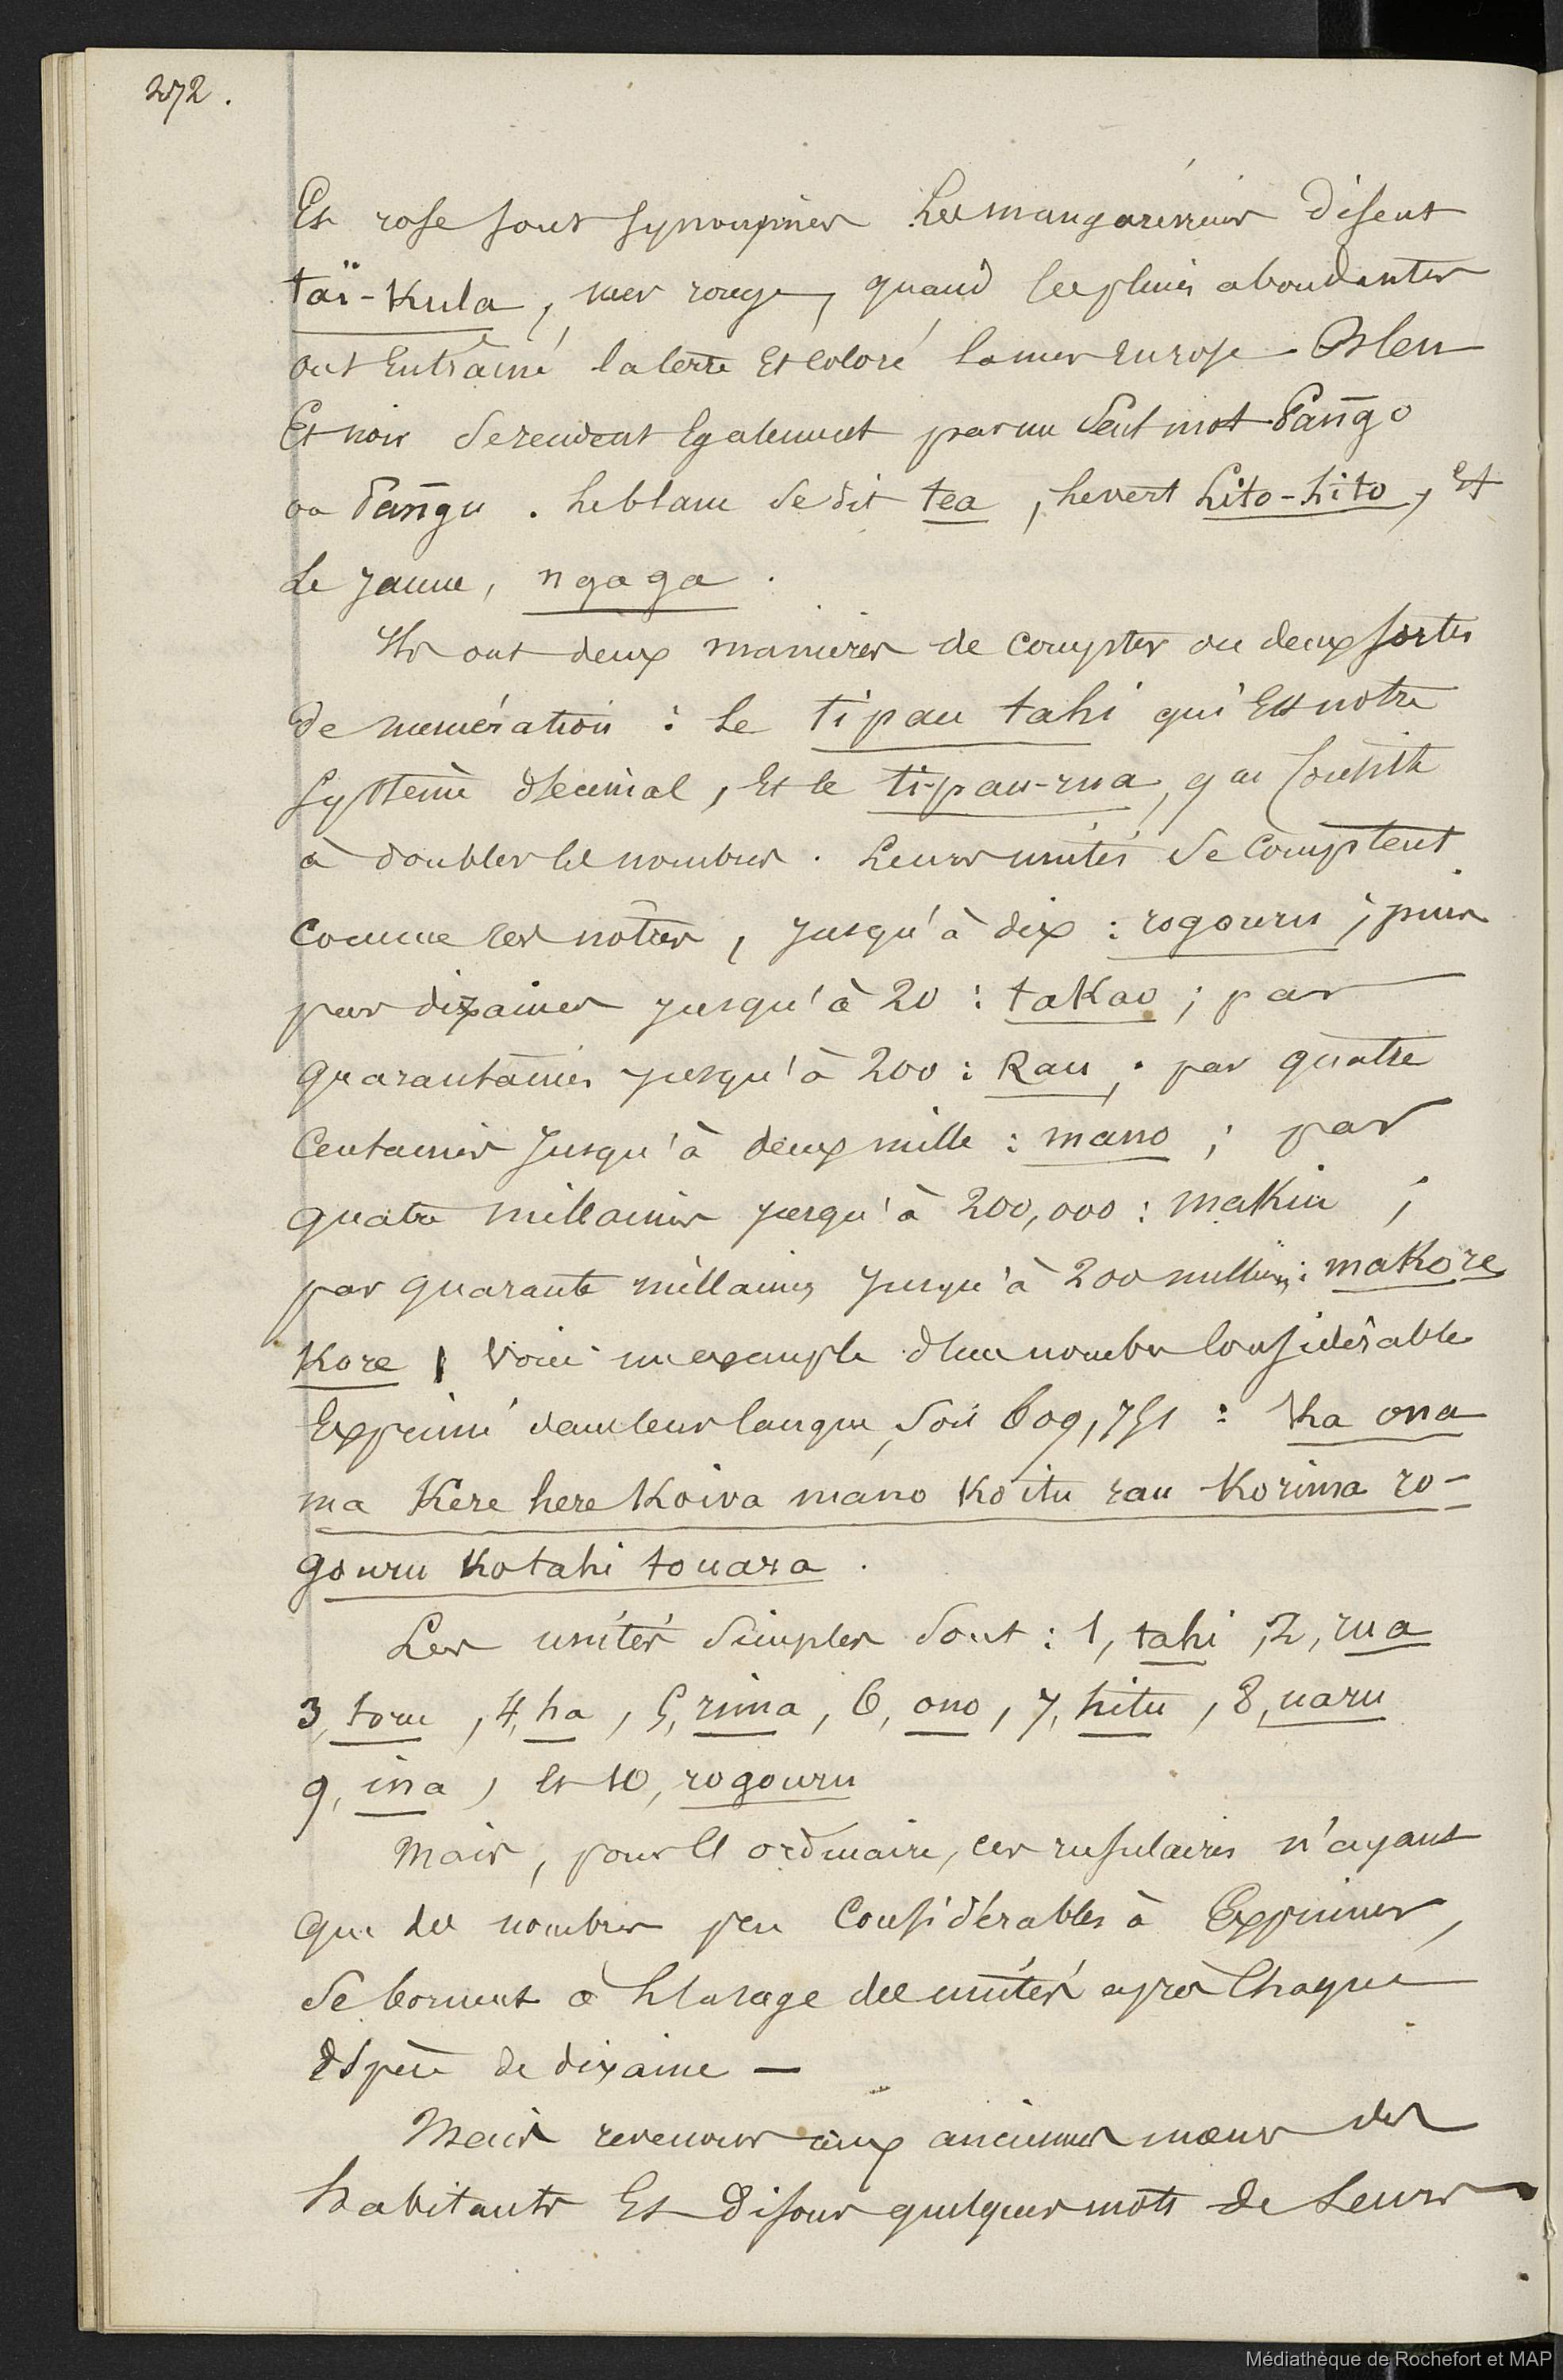 272.
Et rose sont synonymes. Les mangaréviens disent
taï-kula, mer rouge, quand les pluies abondantes
ont entraîné la terre et coloré la mer en rose. Bleu
Et noir se rendent également par un seul mot Pañgo
ou Pañgu. Le blanc se dit tea, le vert Lito-Lito, et
Le jaune, ngaga.
Ils ont deux manières de compter ou deux sortes
de numération : Le tipau tahi qui est notre
système décimal, et le ti-pau-rua, qui consiste
à doubler les nombres. Leurs unités se comptent
comme les nôtres, jusqu'à dix : rogouru ; puis
par dizaines jusqu'à 20 : takao ; par
quarantaines jusqu'à 200 : Rau ; par quatre
Centaines jusqu'à deux mille : mano ; par
quatre millaines jusqu'à 200,000 : makiu ;
par quarante millaines jusqu'à 200 millions : makore
kore. Voici un exemple d'un nombre considérable
Exprimé dans leur langue, soit 609,751 : ka ona
ma Kere here Koiva mano Ko itu rau Korima ro-
gouru Kotahi touara.
Les unités simples sont : 1, tahi, 2, rua
3, toru, 4, ha, 5, rima, 6, ono, 7, hitu, 8, varu
9, iva, et 10, rogouru
Mais, pour l'ordinaire, ces insulaires n'ayant
que des nombres peu considérables à Exprimer,
se bornent à l'usage des unités après chaque
Espèce de dizaine —
Mais revenons aux anciennes mœurs des
habitants Et disons quelques mots de Leurs
Médiathèque de Rochefort et MAP